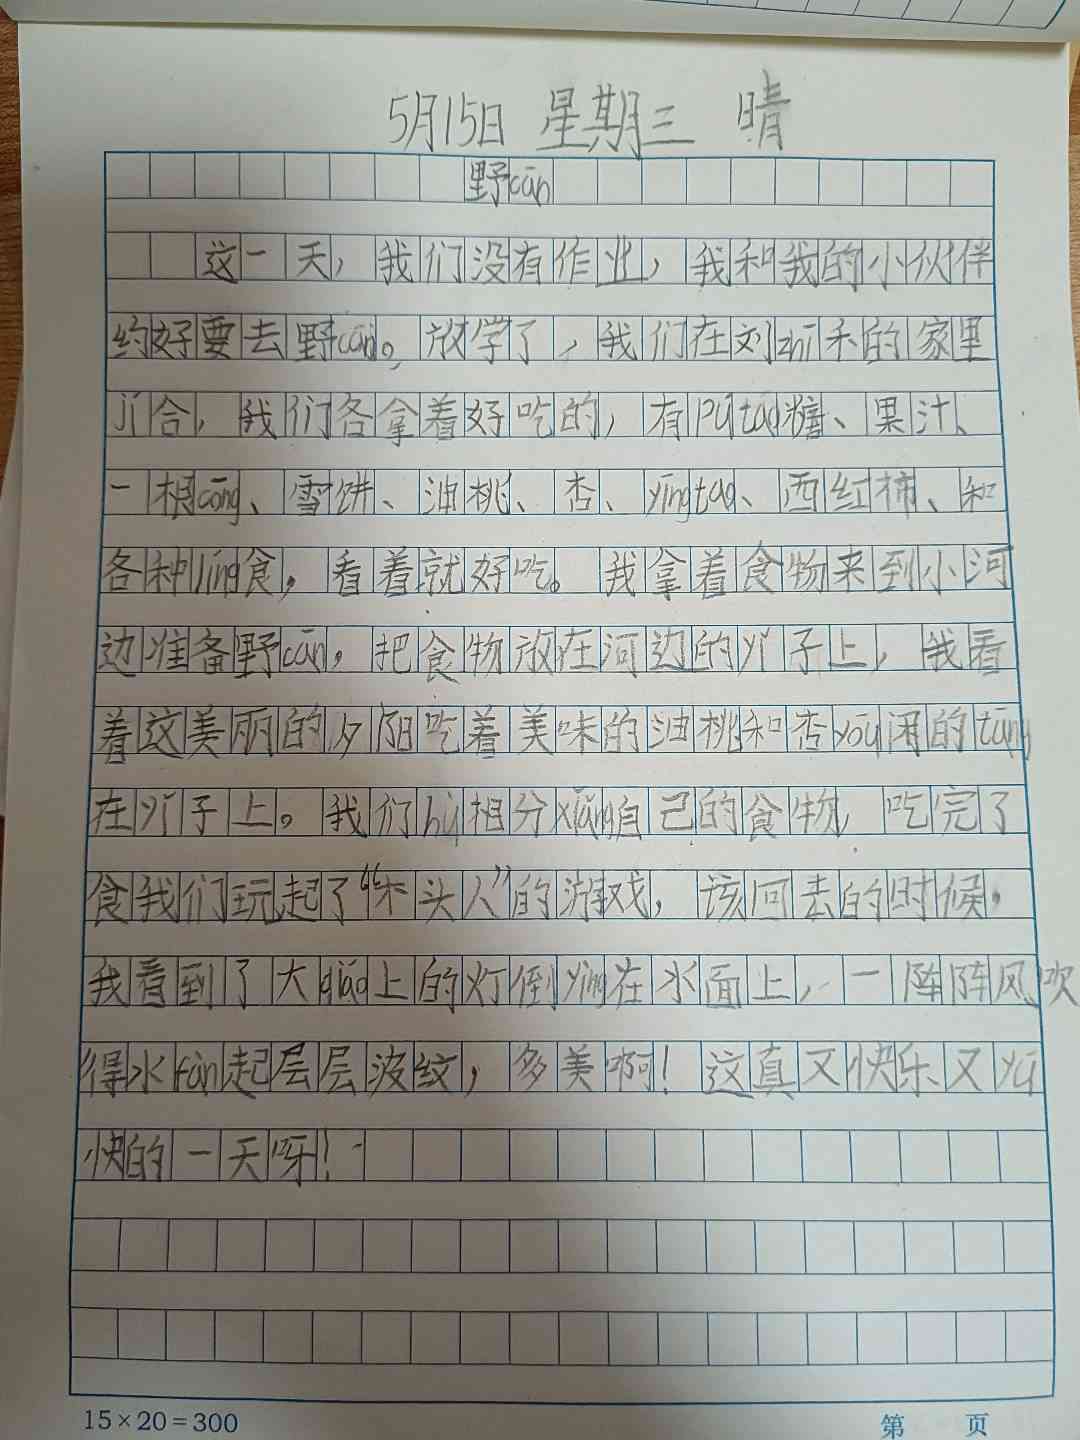 5月15日 星期三 晴
野cān
这一天，我们没有作业，我和我的小伙伴
约好要去野cān。放学了，我们在刘zhǐ禾的家里
jí合，我们各拿着好吃的，有pútáo糖、果汁、
一根cōng、雪饼、油桃、杏、yīngtao、西红柿、和
各种líng食，看着就好吃。我拿着食物来到小河
边准备野cān，把食物放在河边的yǐ子上，我看
着这美丽的夕阳吃着美味的油桃和杏yōu闲的tǎng
在yǐ子上。我们hù相分xiǎng自己的食物，吃完了
食我们玩起了“木头人”的游戏，该回去的时候，
我看到了大qiáo上的灯倒yǐng在水面上，一阵阵风吹
得水fàn起层层波纹，多美啊！这真又快乐又yú
快的一天呀！
15×20=300
第 页